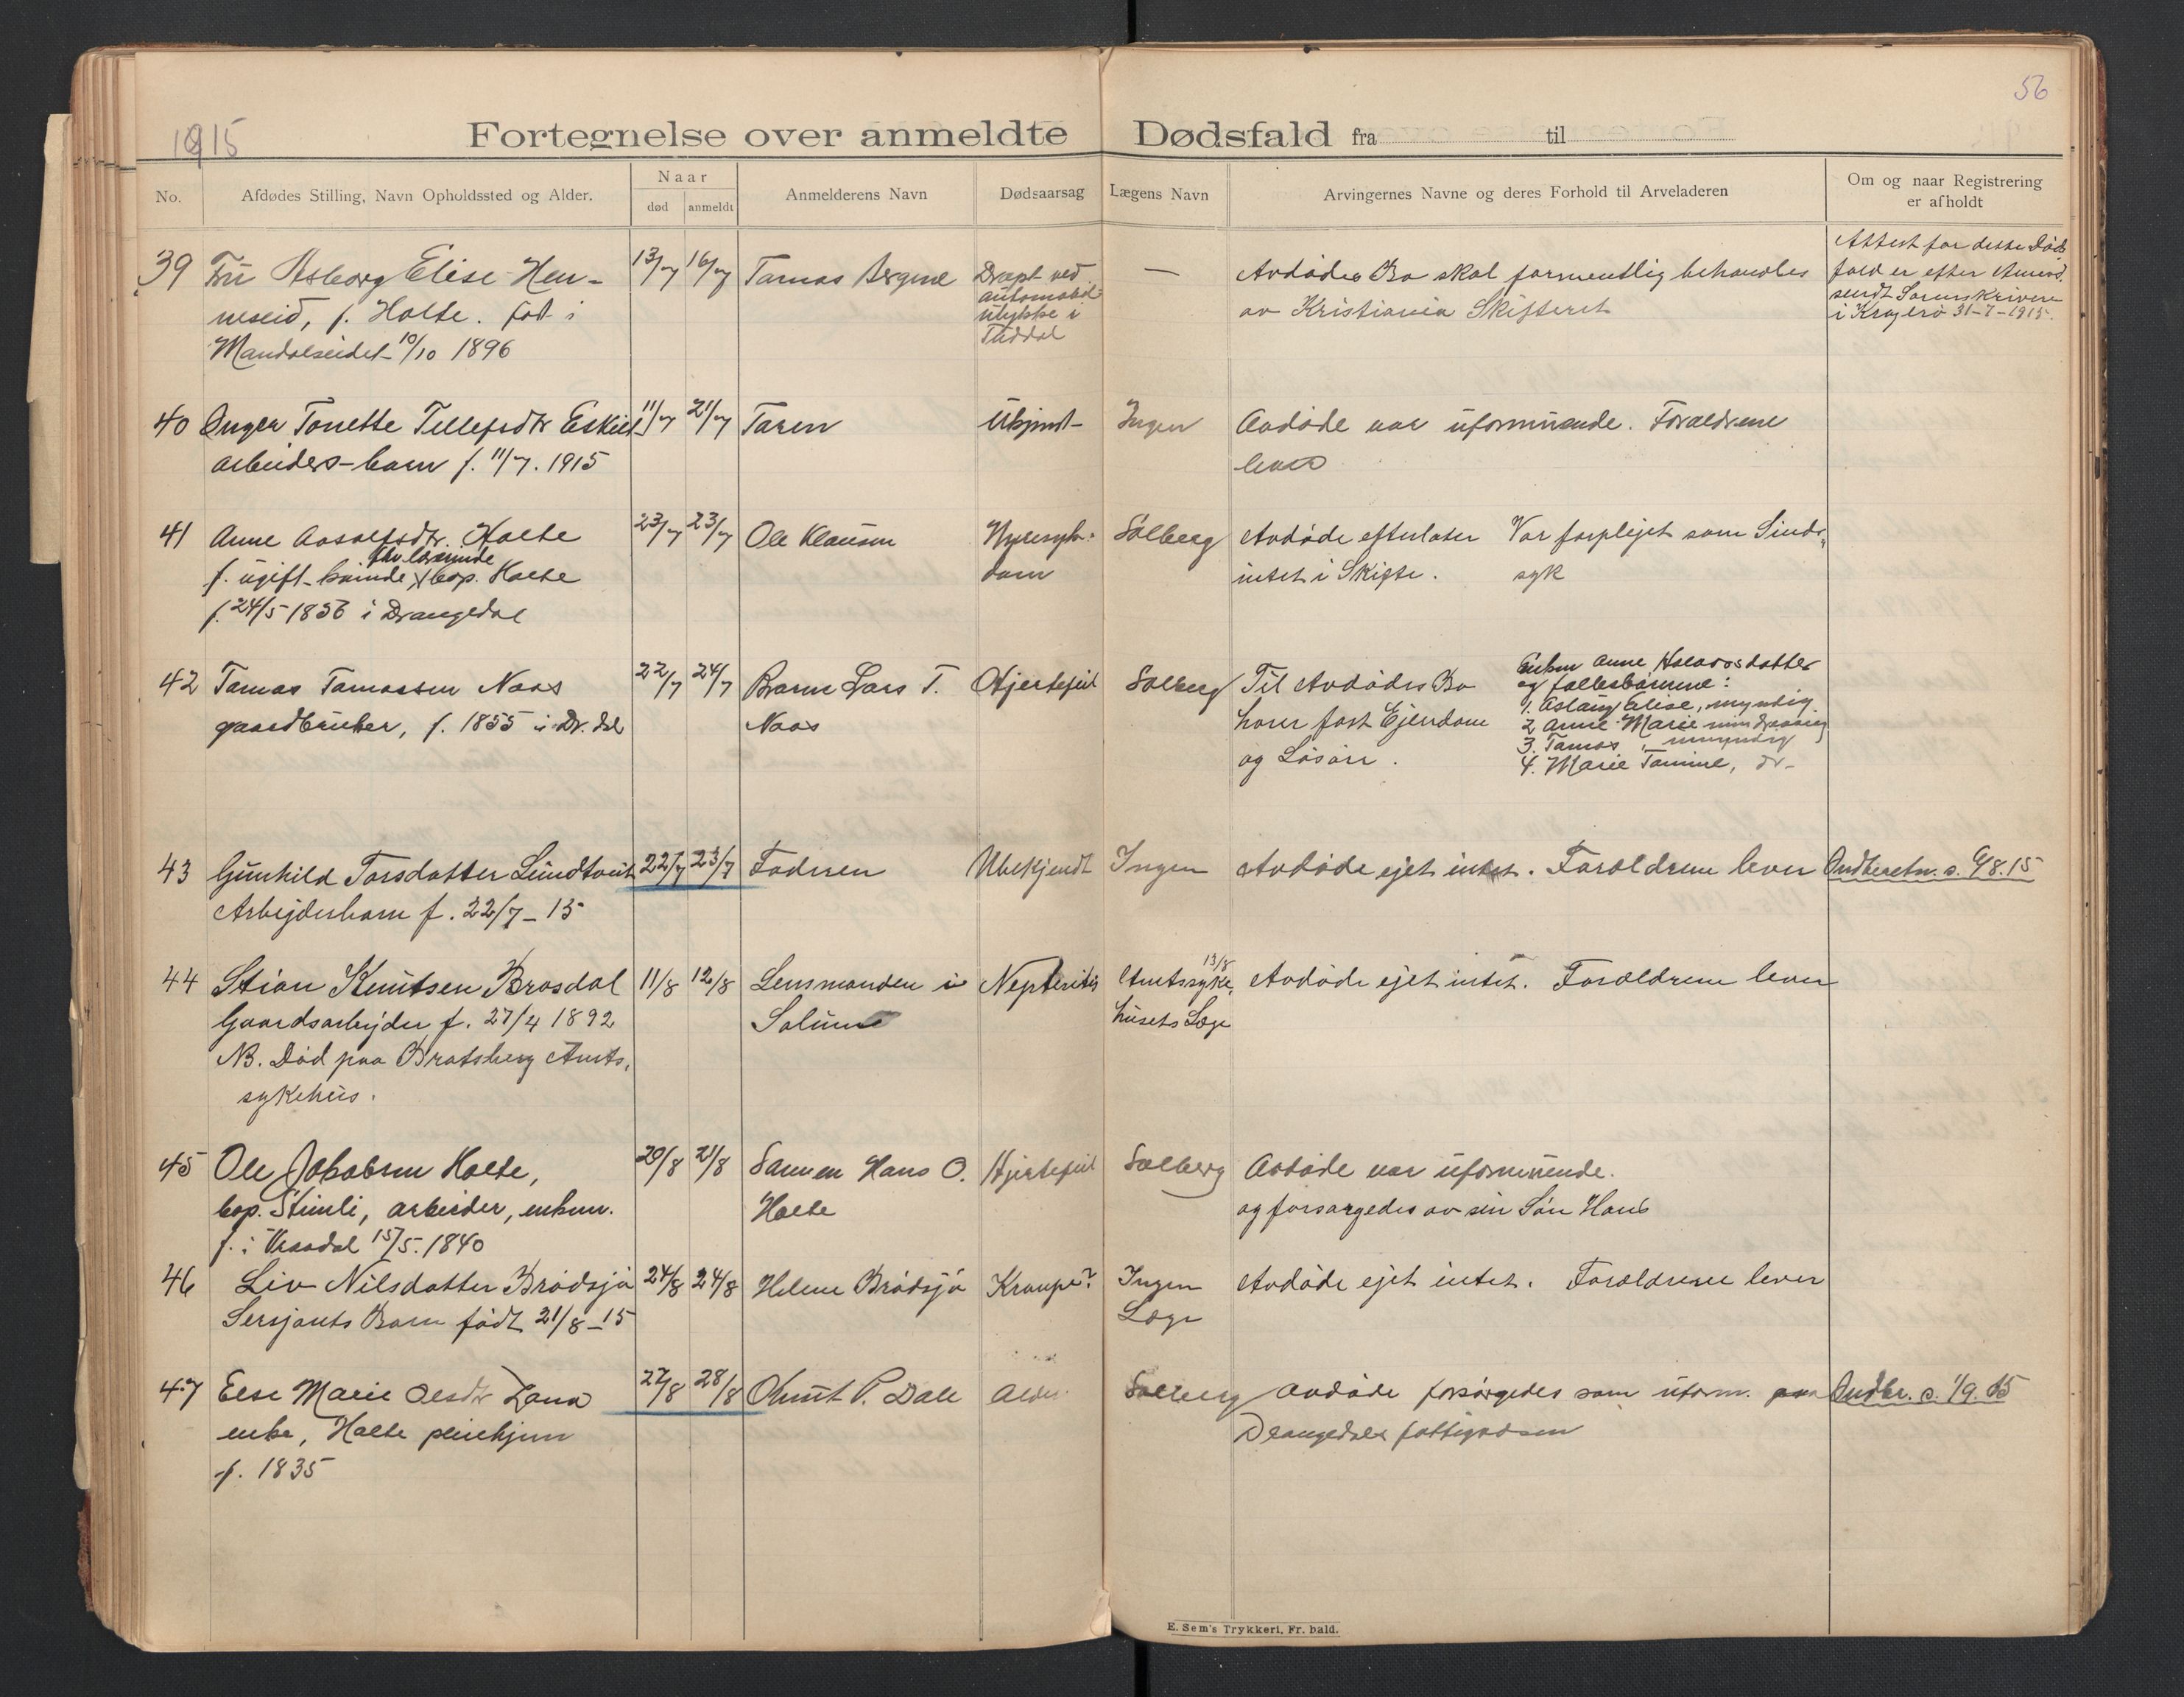 56
1915
Fortegnelse over anmeldte Dødsfald fra til
No.
Afdødes Stilling, Navn Opholdssted og Alder.
Naar
død
anmeldt
Anmelderens Navn
Dødsaarsag
Lægens Navn
Arvingernes Navne og deres Forhold til Arveladeren
Om og naar Registrering
er afholdt
39 Fru Asborg Elise Hen-
neseid, f. Holte. født i
Mandalseidet 10/10 1896
13/7 16/7
Tomas Bergene
Dræpt ved
automobil-
ulykke i
Tuddal
—
Avdødes Bo skal formentlig behandles
av Kristiania Skifteret
Attest for dette Døds
fald er efter
sendt Sorenskriveren
i Kragerø 31-7-1915.
40 Inger Tonette Tellefsdtr Eskil
arbeiders-barn f. 11/7. 1915
11/7 21/7
Faren
Ukjendt-
Ingen
Avdøde var uformuende. Forældrene
lever
41 Anne Aasolfsdtr. Holte
fhv. lærerinde
f. ugift kvinde, bop. Holte
f. 24/5 1856 i Drangedal
23/7 23/7
Ole Klausen
Nyresyk-
dom
Solberg
Avdøde efterlater
intet i Skifte.
Var forplejet som Sinds-
syk
42 Tomas Tomassen Naas
gaardbruker, f. 1855 i Dr.dal
22/7 24/7
Barnet Lars T.
Naas
Hjertefeil
Solberg
Til Avdødes Bo
hører fast Ejendom
og Løsøre.
Enken Anne Halvorsdatter
og fællesbørnene:
1. Aslaug Elise, myndig
2 Anne Marie mindreaarig
3. Tomas, umyndig
4. Marie Tomine, do-
43 Gunhild Torsdatter Lundtveit
Arbejderbarn f. 22/7-15
22/7 23/7
Faderen
Ubekjendt
Ingen
Avdøde ejet intet. Forældrene lever
Indberetn. s. 6/8.15
44 Stian Knutsen Brosdal
Gaardsarbejder f. 27/4 1892
NB. Død paa Bratsberg Amts-
sykehus.
11/8 12/8
Lensmanden i
Solum
13/8
Amtssyke-
husets Læge
Avdøde ejet intet. Forældrene lever
45 Ole Jakobsen Holte,
bop. Stimli, arbeider, enkem.
f. i Vraadal 15/5. 1840
20/8 21/8
Sønnen Hans O.
Holte
Hjertefeil
Solberg
Avdøde var uformuende.
og forsørgedes av sin Søn Hans
46 Liv Nilsdatter Brødsjø
Sersjants Barn født 21/8-15
24/8 24/8
Helene Brødsjø
Krampe?
Ingen
Læge
Avdøde ejet intet. Forældrene lever
47 Else Marie Olsdtr
enke, Holte pleiehjem
f. 1835
27/8 28/8
Knut P. Dale
Alder
Solberg
Avdøde forsørgedes som uform. paa
Drangedals fattigvæsen
Indber. s. 1/9.15
E. Sem's Trykkeri, Fr. hald.